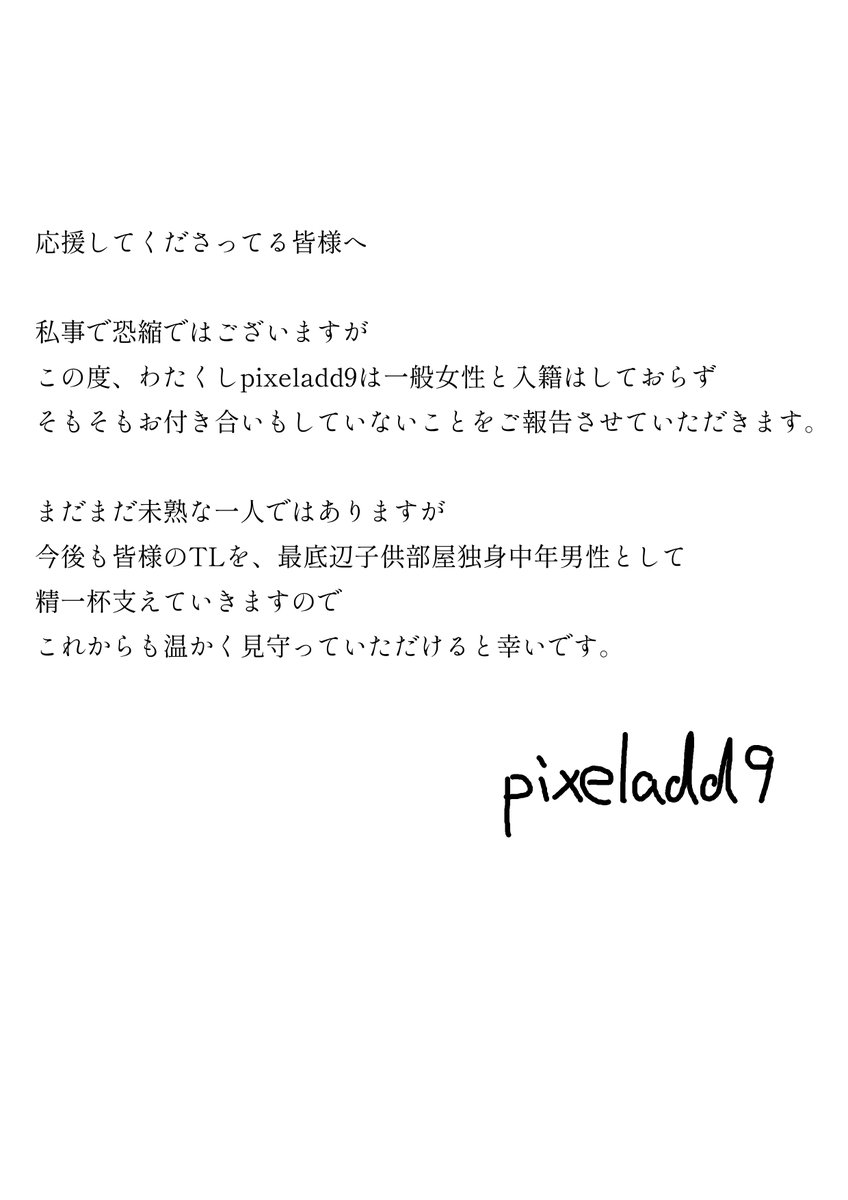 応援してくださってる皆様へ
私事で恐縮ではございますが
この度、わたくしpixeladd9は一般女性と入籍はしておらず
そもそもお付き合いもしていないことをご報告させていただきます。
まだまだ未熟な一人ではありますが
今後も皆様のTLを、最底辺子供部屋独身中年男性として
精一杯支えていきますので
これからも温かく見守っていただけると幸いです。
pixeladd9